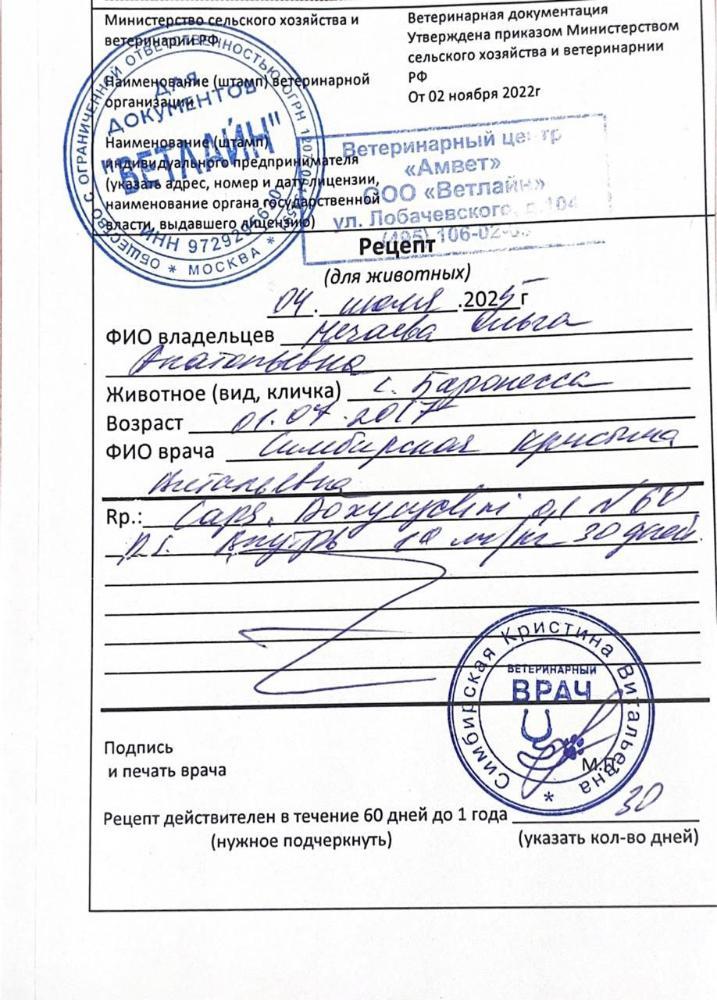 Министерство сельского хозяйства и
ветеринарии РФ
Ветеринарная документация
Утверждена приказом Министерством
сельского хозяйства и ветеринарнии
РФ
От 02 ноября 2022г
Наименование (штамп) ветеринарной
организации
Наименование (штамп)
индивидуального предпринимателя
(указать адрес, номер и дату лицензии,
наименование органа государственной
власти, выдавшего лицензию)
ОБЩЕСТВО С ОГРАНИЧЕННОЙ ОТВЕТСТВЕННОСТЬЮ ОГРН
ДЛЯ
ДОКУМЕНТОВ
"ВЕТЛАЙН"
ИНН
* МОСКВА *
Ветеринарный центр
«Амвет»
ООО «Ветлайн»
ул. Лобачевского, д.104
(495) 106-02-
Рецепт
(для животных)
04. июля .2025 г
ФИО владельцев Нечаева Ольга
Анатольевна
Животное (вид, кличка) с. Баронесса
Возраст 01.07.2017
ФИО врача Симбирская Кристина
Витальевна
Rp.: Caps. 0,1 N60
D.S. Внутрь 10 мг/кг 30 дней.
Симбирская Кристина Витальевна
ВЕТЕРИНАРНЫЙ
ВРАЧ
*
Подпись
и печать врача
М.П.
Рецепт действителен в течение 60 дней до 1 года 30
(нужное подчеркнуть) (указать кол-во дней)